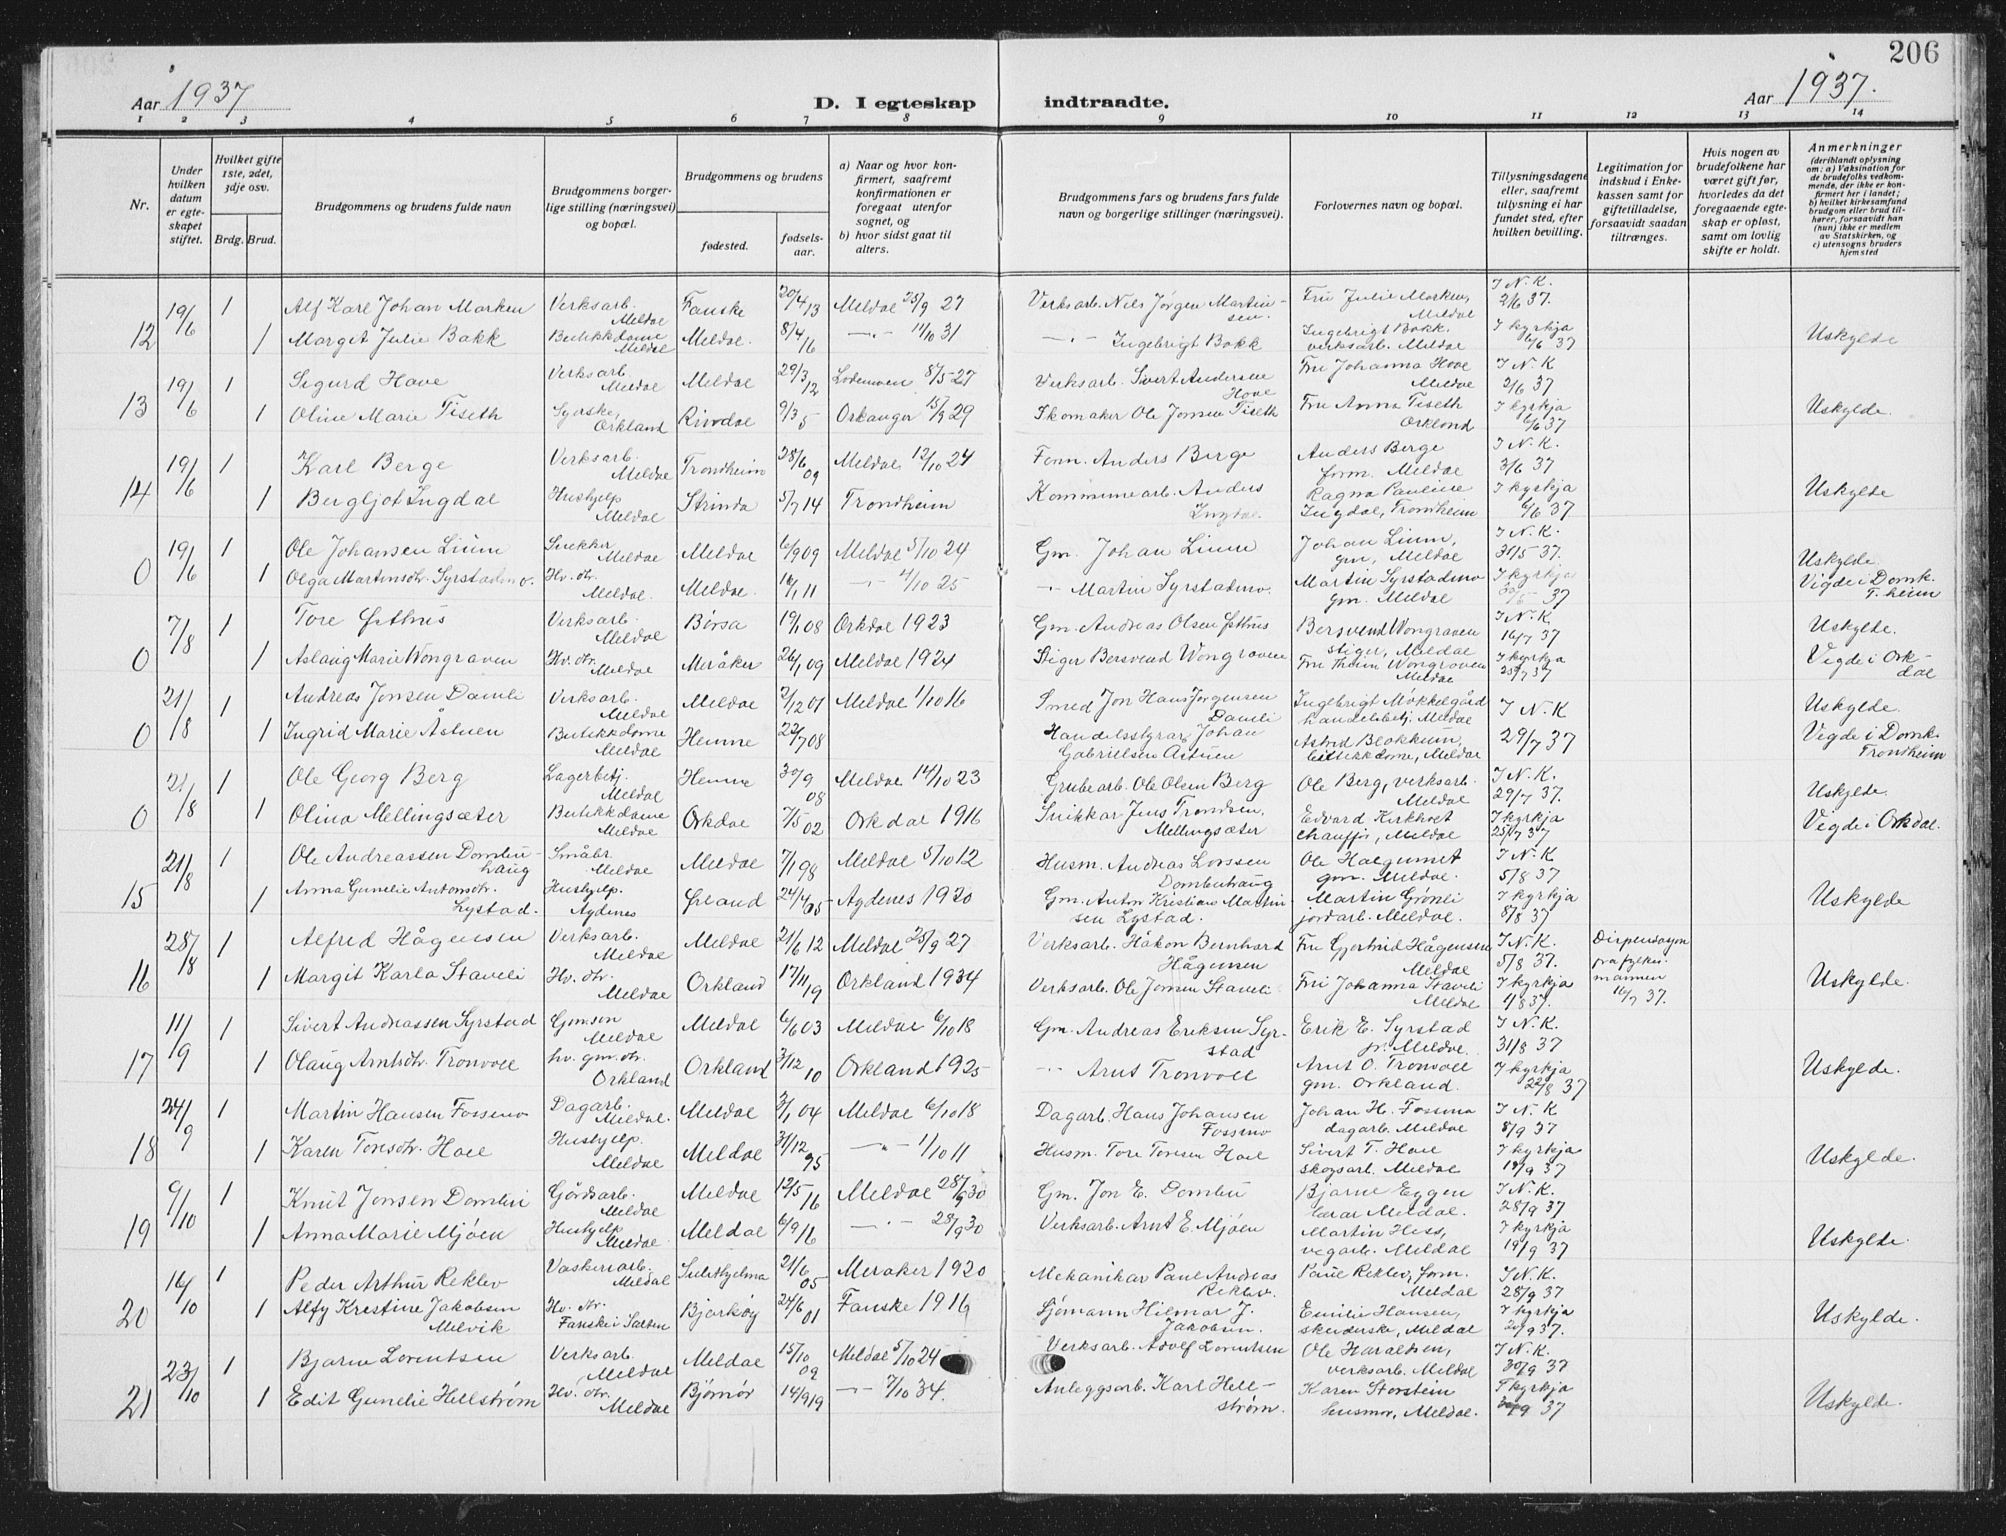 206
Aar 1937
D. I egteskap indtraadte.
Aar 1937.
1 2 3 4 5 6 7 8 9 10 11 12 13 14
Nr.
Under hvilken datum er egte-skapet stiftet.
Hvilket gifte 1ste, 2det, 3dje osv.
Brdg. Brud.
Brudgommens og brudens fulde navn
Brudgommens borger-lige stilling (næringsvei) og bopæl.
Brudgommens og brudens
fødested.
fødsels-aar.
a) Naar og hvor kon-firmert, saafremt konfirmationen er foregaat utenfor sognet, og
b) hvor sidst gaat til alters.
Brudgommens fars og brudens fars fulde navn og borgerlige stillinger (næringsvei).
Forlovernes navn og bopæl.
Tillysningsdagene eller, saafremt tillysning ei har fundet sted, efter hvilken bevilling.
Legitimation for indskud i Enke-kassen samt for giftetilladelse, forsaavidt saadan tiltrænges.
Hvis nogen av brudefolkene har været gift før, hvorledes da det foregaaende egte-skap er opløst, samt om lovlig skifte er holdt.
Anmerkninger
(deriblandt oplysning om: a) Vaksination for de brudefolks vedkom-mende, der ikke er kon-firmert her i landet; b) hvilket kirkesamfund brudgom eller brud til-hører, forsaavidt han (hun) ikke er medlem av Statskirken, og c) utensogns bruders hjemsted
19/6 1 Alf Karl Johan Marken Verksarb. Meldal Fauske 20/4 13 Meldal 25/9 27 Verksarb. Nils Jørgen Martinsen. Fru Julie Marken, Meldal I N. K. 2/6 37.
12 1 Margit Julie Bakk Butikkdame Meldal Meldal. 8/4 16 —"— 11/10 31 —"— Ingebrigt Bakk Ingebrigt Bakk. verksarb. Meldal I kyrkja 6/6 37 Uskylde
19/6 1 Sigurd Hove Verksarb. Meldal Meldal 29/3 12 8/5-27 Verksarb. Sivert Andersen Hove Fru Johanna Hove Meldal I N. K 2/6 37
13 1 Oline Marie Tiseth Syerske, Orkland Rindal 9/3 5 Orkanger 15/9 29 Skomaker Ole Jonsen Tiseth Fru Anna Tiseth Orkland I kyrkja 6/6 37 Uskylde.
19/6 1 Karl Berge Verksarb. Meldal Trondheim 28/6 09 Meldal 12/10 24 Form. Anders Berge Anders Berge form. Meldal I N. K. 3/6 37
14 1 Bergljot Ingdal Hushjelp Meldal Strinda 5/7 14 Trondheim Kommunearb. Anders Ingdal. Ragna Pauline Ingdal, Trondheim I kyrkja 6/6 37 Uskylde
19/6 1 Ole Johansen Lium Snekker Meldal Meldal 6/9 09 Meldal 5/10 24 Gm. Johan Lium Johan Lium, gm, Meldal I N. K. 31/5 37. Uskylde
0 1 Olga Martinsdtr. Syrstadmo. Hv. dtr. Meldal. Meldal. 16/1 11 —"— 4/10 25 —"— Martin Syrstadmo. Martin Syrstadmo gm. Meldal I kyrkja 37 Vigde i Domk. T.heim
7/8 1 Tore Østhus Verksarb. Meldal Børsa 19/1 08 Orkdal 1923 Gm. Andreas Olsen Østhus Bersvend Wongraven stiger, Meldal I N. K 16/7 37 Uskylde.
0 1 Aslaug Marie Wongraven Hv. dtr. Meldal Meråker 26/1 09 Meldal 1924 Stiger Bersvend Wongraven Fru Wongraven Meldal I kyrkja 25/7 37 Vigde i Orkdal
21/8 1 Andreas Jonsen Damli Verksarb. Meldal Meldal 2/12 01 Meldal 1/10 16 Smed Jon Hans Jørgensen Damli Ingebrigt Møkkelgård handelsbetj. Meldal I N. K Uskylde.
0 1 Ingrid Marie Åstuen Butikkdame Meldal Hemne 22/7 08 Handelsstyrar Johan Gabrielsen Åstuen Astrid Blokkum, butikkdame, Meldal 29/7 37 Vigde i Domk. Trondheim
21/8 1 Ole Georg Berg Lagerbetj. Meldal Hemne 30/9 08 Meldal 14/10 23 Grubearb. Ole Olsen Berg Ole Berg, verksarb. Meldal I N. K. 29/7 37. Uskylde.
0 1 Olina Mellingsæter Butikkdame Meldal Orkdal 7/5 02 Orkdal 1916 Snikkar Jens Trondsen, Mellingsæter Edvard Kirkholt chauffør, Meldal I kyrkja 25/7 37 Vigde i Orkdal.
21/8 1 Ole Andreassen Dombuhaug Småbr. Meldal Meldal 7/1 98 Meldal 5/10 12 Husm. Andreas Larssen Dombuhaug Ole Halgunset gm. Meldal. I N. K 5/8 37
15 1 Anna Gunelie Antonsdtr. Lystad. Hushjelp. Agdenes Ørland 24/4 05 Agdenes 1920 Gm. Anton Kristian Martinsen Lystad. Martin Grønli jordarb. Meldal. I kyrkja 8/8 37 Uskylde
28/8 1 Alfred Hågensen Verksarb. Meldal Meldal 21/6 12 Meldal 25/9 27 Verksarb. Håkon Bernhard Hågensen Fru Gjertrud Hågensen Meldal I N. K. 5/8 37. Dispensasjon frå fylkesmannen 16/7 37.
16 1 Margit Karla Staveli Hv. dtr. Meldal Orkland 17/11 19 Orkland 1934 Verksarb. Ole Jonsen Staveli Fru Johanna Staveli Meldal I kyrkja 1/8 37. Uskylde.
11/9 1 Sivert Andreassen Syrstad Gm.søn Meldal Meldal 6/6 03 Meldal 6/10 18 Gm. Andreas Eriksen Syrstad Erik E. Syrstad jr. Meldal. I N. K. 31/8 37
17 1 Olaug Arntsdtr. Tronvoll hv. gm. dtr. Orkland Orkland 3/12 10 Orkland 1925 —"— Arnt Tronvoll Arnt O. Tronvoll gm. Orkland. I kyrkja 22/8 37 Uskylde.
24/9 1 Martin Hansen Fossmo Dagarb. Meldal. Meldal 3/1 04 Meldal 6/10 18 Dagarb. Hans Johansen Fossmo Johan H. Fossmo dagarb. Meldal I N. K 8/9 37
18 1 Karen Toresdtr. Hoel Hushjelp. Meldal Meldal 31/12 95 —"— 1/10 11 Husm. Tore Toresen Hoel Sivert T. Hoel skogsarb. Meldal I kyrkja 19/9 37 Uskylde.
9/10 1 Knut Jonsen Dombu Gårdsarb. Meldal Meldal 12/5 16 Meldal 28/9 30 Gm. Jon E. Dombu Bjarne Eggen lærar Meldal. I N. K. 28/9 37
19 1 Anna Marie Mjøen Hushjelp Meldal Meldal 6/9 16 —"— 28/9 30 Verksarb. Arnt E. Mjøen Martin Hess, vegarb. Meldal I kyrkja 19/9 37 Uskylde.
16/10 1 Peder Arthur Reklev Vaskeriarb. Meldal Sulithjelma 21/6 05 Meraker 1920 Mekanikar Paul Andreas Reklev. Paul Reklev, form. Meldal I N. K. 28/9 37
20 1 Alfy Krestine Jakobsen Melvik Hv. dtr. Fauske i Salten Bjarkøy 24/6 01 Fauske 1916 Sjømann Hilmar J. Jakobsen. Emilie Hansen, skredderske, Meldal I kyrkja 20/9 37. Uskylde.
23/10 1 Bjarne Lorentsen Verksarb. Meldal Meldal 15/10 09 Meldal 5/10 24 Verksarb. Adolf Lorentsen Ole Haraldsen, verksarb. Meldal I N. K. 30/9 37
21 1 Edit Gunelie Hellstrøm Hv. dtr. Meldal Bjørnør 14/9 19 —"— 7/10 34. Anleggsarb. Karl Hellstrøm. Karen Storstein husmor, Meldal. I kyrkja 9 37 Uskylde.